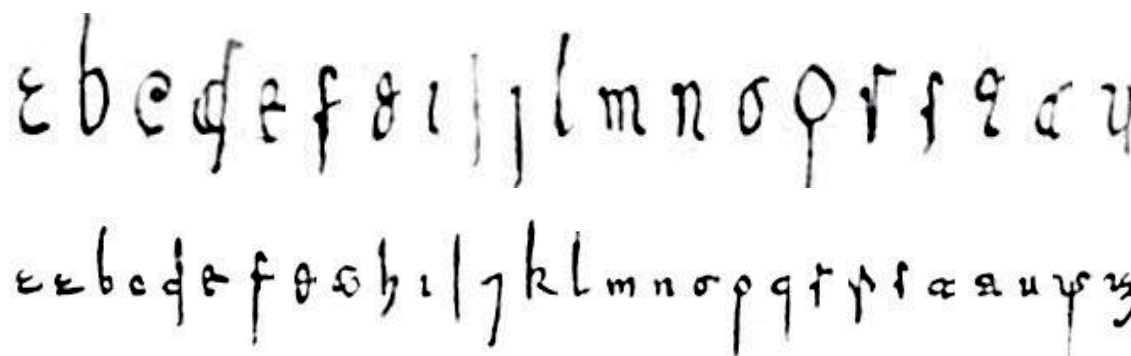 a b c d e f g i i j l m n o p r s t t u
a a b c d e f g g h i i j k l m n o p q r r s t t u